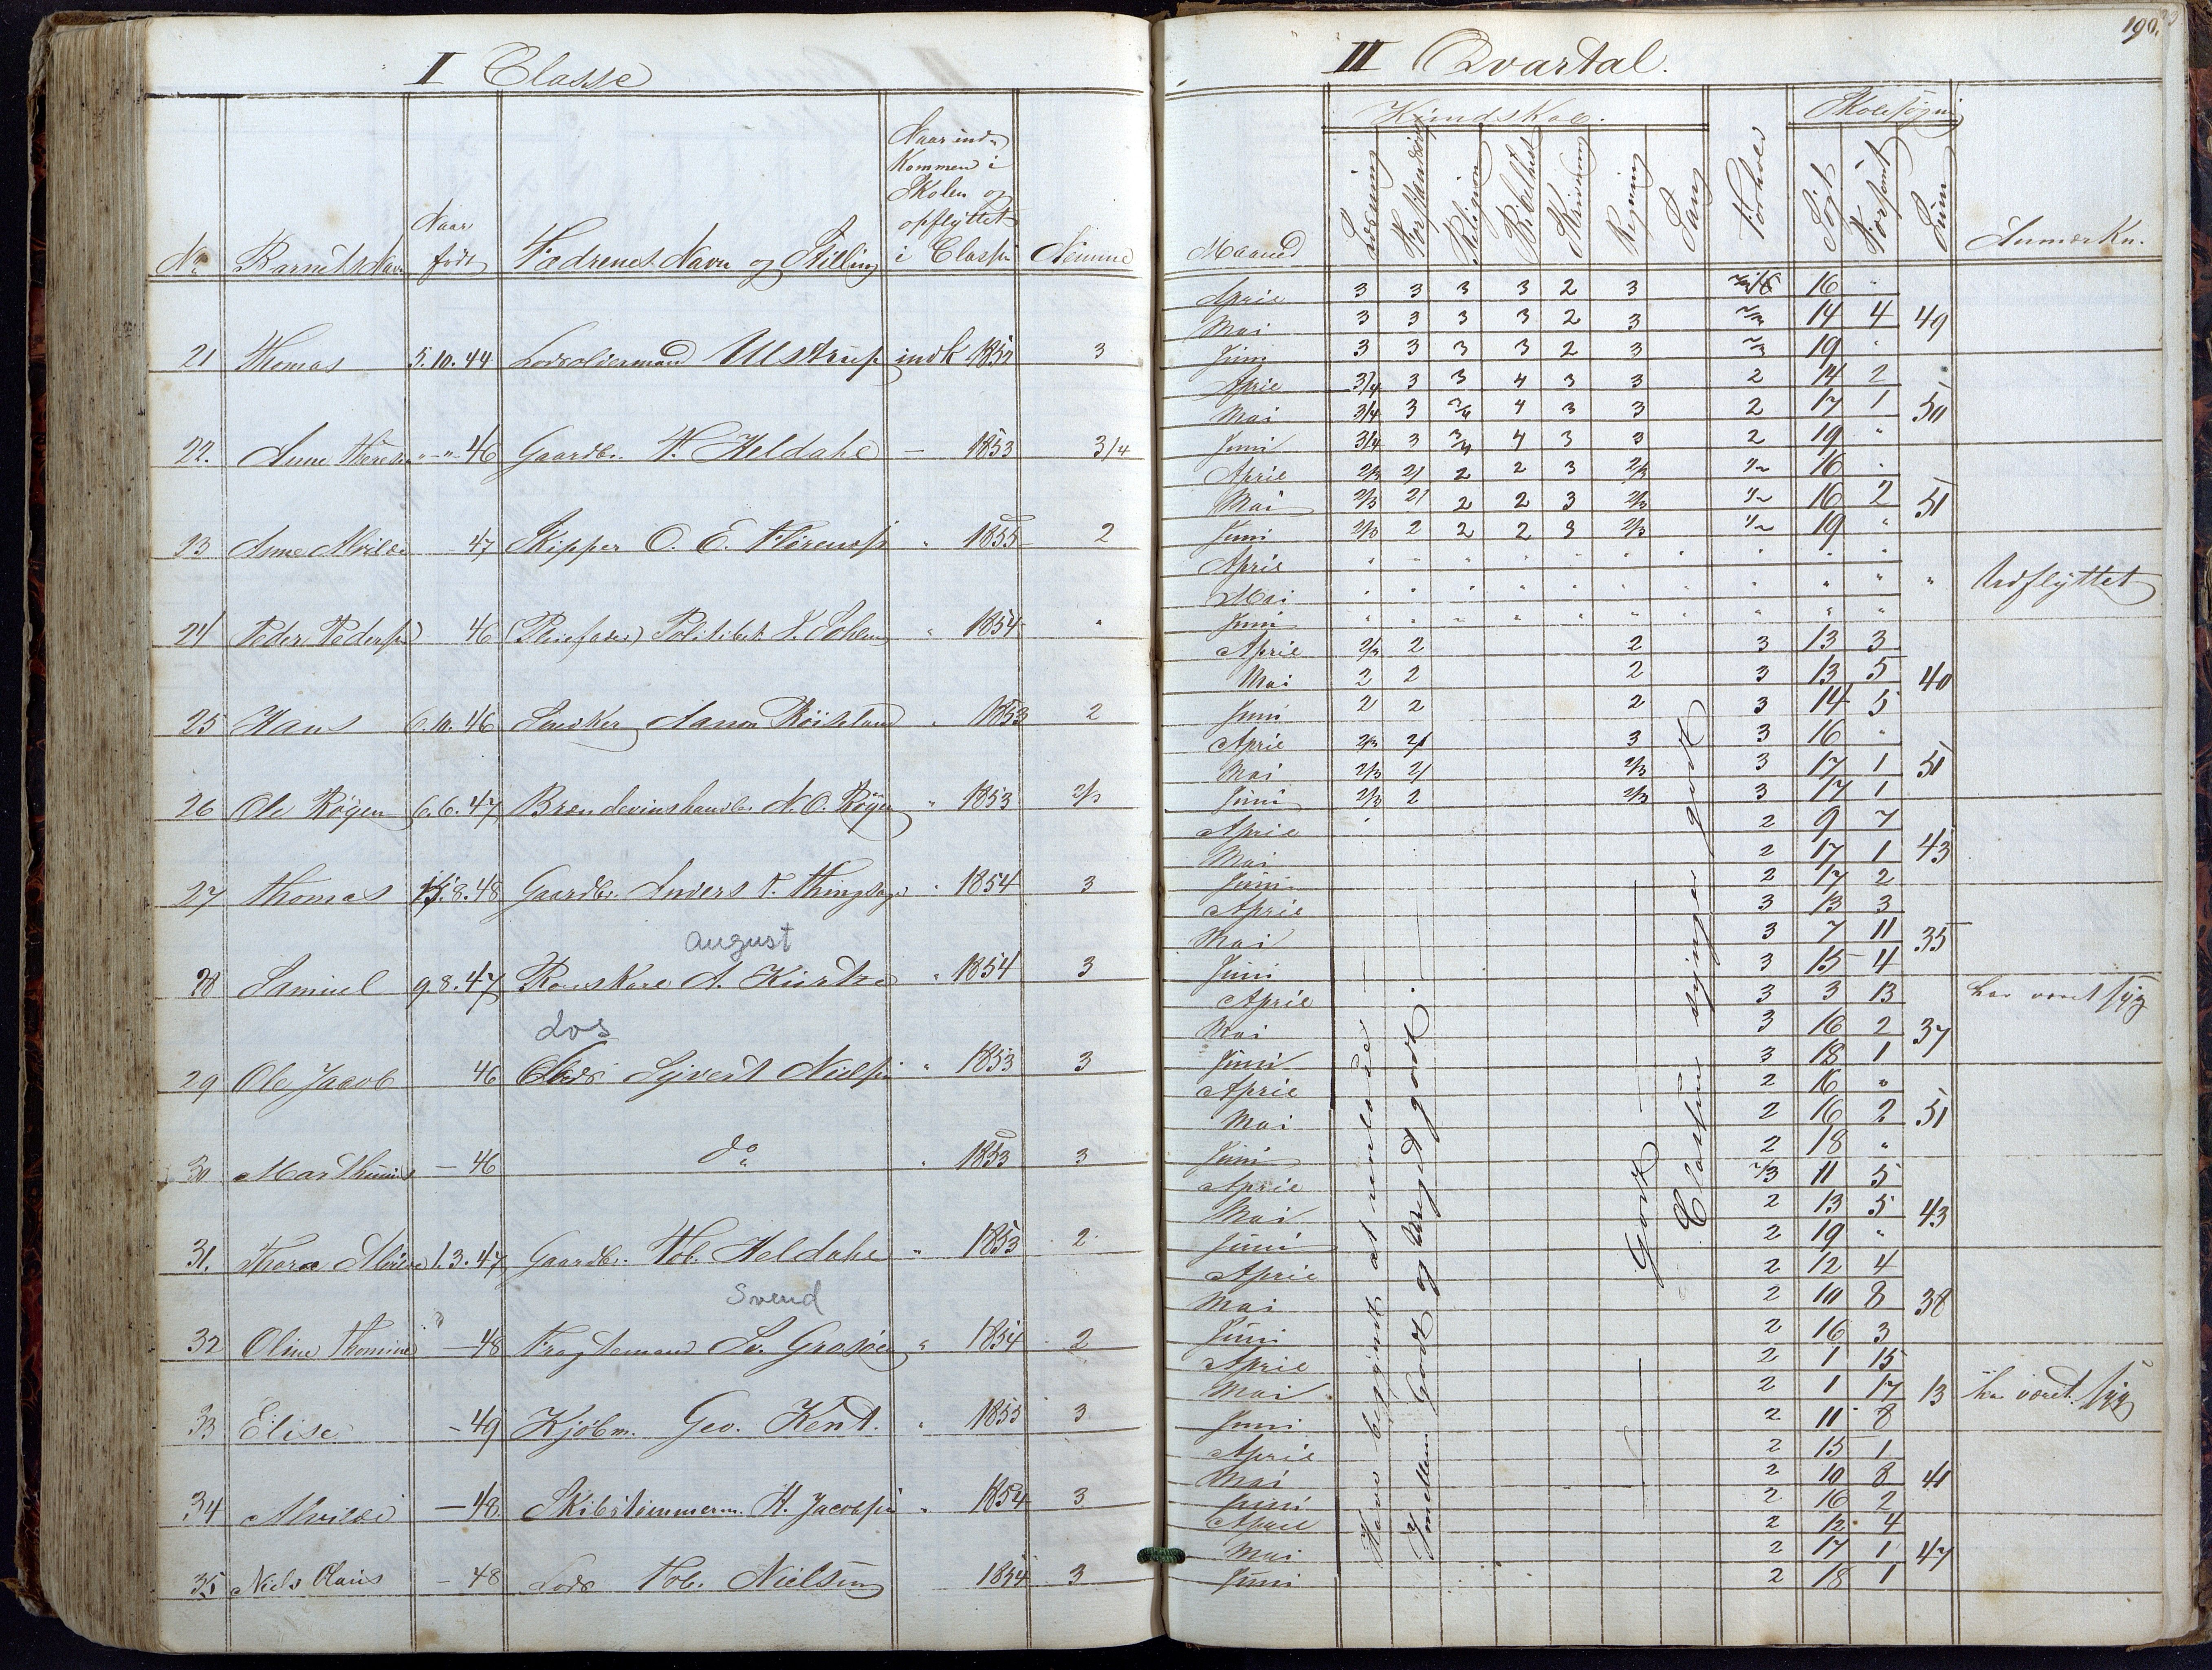 I Classe
Naar ind-
kommen i
Skolen og
opflyttet
i Classen
Naar
født
No Barnets Navn Fædrenes Navn og Stilling Nemme
21 Thomas 5.10.44 Lodsoldermand Ulstrup indk 1852 3
22. Anne Therese " - " - 46 Gaardbr. T. Heldahl — 1853 3/4
23 Anne Alvilde - 47 Skipper O. E. " 1855 2
24 Peder Pedersen 46 (Pleiefader) Politibet. " 1854 "
25 Hans 6.10.46 Snedker Aanon " 1853 2
26 Ole Røgen 6.6.47 Brændevinshandl. N. O. Røgen " 1853 2/3
27 Thomas 15.8.48 Gaardbr. Anders T. " 1854 3
August
28 Samuel 9.8.47 A. " 1854 3
Los
29 Ole Jacob 46 Lods Syvert Nielsen " 1853 3
30 Marthinius — 46 do " 1853 3
31. Thora Alvilde 1.3.47 Gaardbr. Tob. Heldahl " 1853 2
Svend
32 Oline Thomine — 48 Fragtemand Sv. Grosøe " 1854 2
33 Elise - 49 Kjøbm. Geo. Kent. " 1855 3
34 Alvilde — 48 Skibstømmerm. H. Jacobsen " 1854 3
35 Niels Olaus - 48 Lods Tob. Nielsen 1854 3
190.
III Qvartal.
Kundskab. Skolesøgning
Maaned Læsning Religion Skrivning Regning Sang Forhold Søgt Forsømt Sum Anmærkn.
April 3 3 3 3 2 3 16 "
Mai 3 3 3 3 2 3 14 4 49
Juni 3 3 3 3 2 3 19 "
April 3/4 3 3 4 3 3 2 14 2
Mai 3/4 3 3/4 4 3 3 2 17 1 50
Juni 3/4 3 3/4 4 3 3 2 19 "
April 2/3 2/ 2 2 3 2/3 1/2 16 "
Mai 2/3 2/ 2 2 3 2/3 1/2 16 2 51
Juni 2/3 2 2 2 3 2/3 1/2 19 "
April " " " " " " " " " "
Mai " " " " " " " " " " " Udflyttet
Juni " " " " " " " " " "
April 2/3 2 2 3 13 3
Mai 2 2 2 3 13 5 40
Juni 2 2 2 3 14 5
April 2/3 2/ 3 3 16 "
Mai 2/3 2/ 2/3 3 17 1 51
Juni 2/3 2 2/3 3 17 1
April 2 9 7
Mai 2 17 1 43
Juni 2 17 2
April 3 13 3
Mai 3 7 11 35
Juni 3 15 4
April 3 3 13 har været syg
Mai 3 16 2 37
Juni 3 18 1
April 2 16 "
Mai 2 16 2 51
Juni 2 18 "
April 2/3 11 5
Mai 2 13 5 43
Juni 2 19 "
April 2 12 4
Mai 2 10 8 38
Juni 2 16 3
April 2 1 15
Mai 2 1 17 13 har været syg
Juni 2 11 8
April 2 15 1
Mai 2 10 8 41
Juni 2 16 2
April 2 12 4
Mai 2 17 1 47
Juni 2 18 1
Have begyndt at
Imellem Godt og Meget godt.
Godt
Classen synger godt